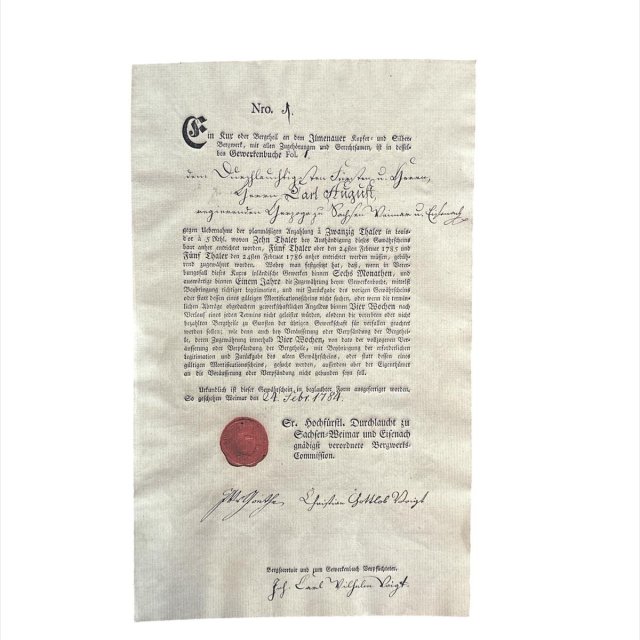 Nro. 1.
Ein Kux oder Bergtheil an dem Ilmenauer Kupfer- und Silber-
Bergwerk, mit allen Zugehörungen und Gerechtsamen, ist in dessel-
ben Gewerkenbuche Fol. 1.
dem Durchlauchtigsten Fürsten u. Herrn,
Herrn Carl August,
regierenden Herzog zu Sachsen Weimar u. Eisenach
gegen Uebernahme der planmäßigen Anzahlung à Zwanzig Thaler in Louis-
d'or à 5 Rthl. wovon Zehn Thaler bey Aushändigung dieses Gewährscheins
baar anher entrichtet worden, Fünf Thaler aber den 24sten Februar 1785 und
Fünf Thaler den 24sten Februar 1786 anher entrichtet werden müssen, gebüh-
rend zugewähret worden. Wobey man festgesetzt hat, daß, wenn in Vererr-
bungsfall dieses Kuxes inländische Gewerken binnen Sechs Monathen, und
auswärtige binnen Einem Jahre die Zugewährung beym Gewerkenbuche, mittelst
Beybringung richtiger Legitimation, und mit Zurückgabe des vorigen Gewährscheins
oder statt dessen eines gültigen Mortificationsscheins nicht suchen, oder wenn die termin-
lichen Abträge obgedachten gewerkschaftlichen Angeldes binnen Vier Wochen nach
Verlauf eines jeden Termins nicht geleistet würden, alsdenn die vererbten oder nicht
bezahlten Bergtheile zu Gunsten der übrigen Gewerkschaft für verfallen geachtet
werden sollen; wie denn auch bey Veräusserung oder Verpfändung der Bergthei-
le, deren Zugewährung innerhalb Vier Wochen, von dato der vollzogenen Ver-
äusserung oder Verpfändung der Bergtheile, mit Beybringung der erforderlichen
Legitimation und Zurückgabe des alten Gewährscheins, oder statt dessen eines
gültigen Mortificationsscheins, gesucht werden, ausserdem aber der Eigenthümer
an die Veräusserung oder Verpfändung nicht gebunden seyn soll.
Urkundlich ist dieser Gewährschein in beglaubter Form ausgefertiget worden.
So geschehen Weimar den 24. Febr. 1784.
Sr. Hochfürstl. Durchlaucht zu
Sachsen-Weimar und Eisenach
gnädigst verordnete Bergwerks-
Commission.
JWv Goethe Christian Gottlob Voigt
Bergsecretair und zum Gewerkenbuch Verpflichteter.
Joh. Carl Wilhelm Voigt.